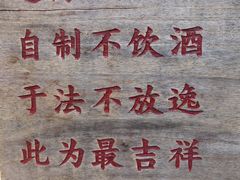 自制不饮酒
于法不放逸
此为最吉祥